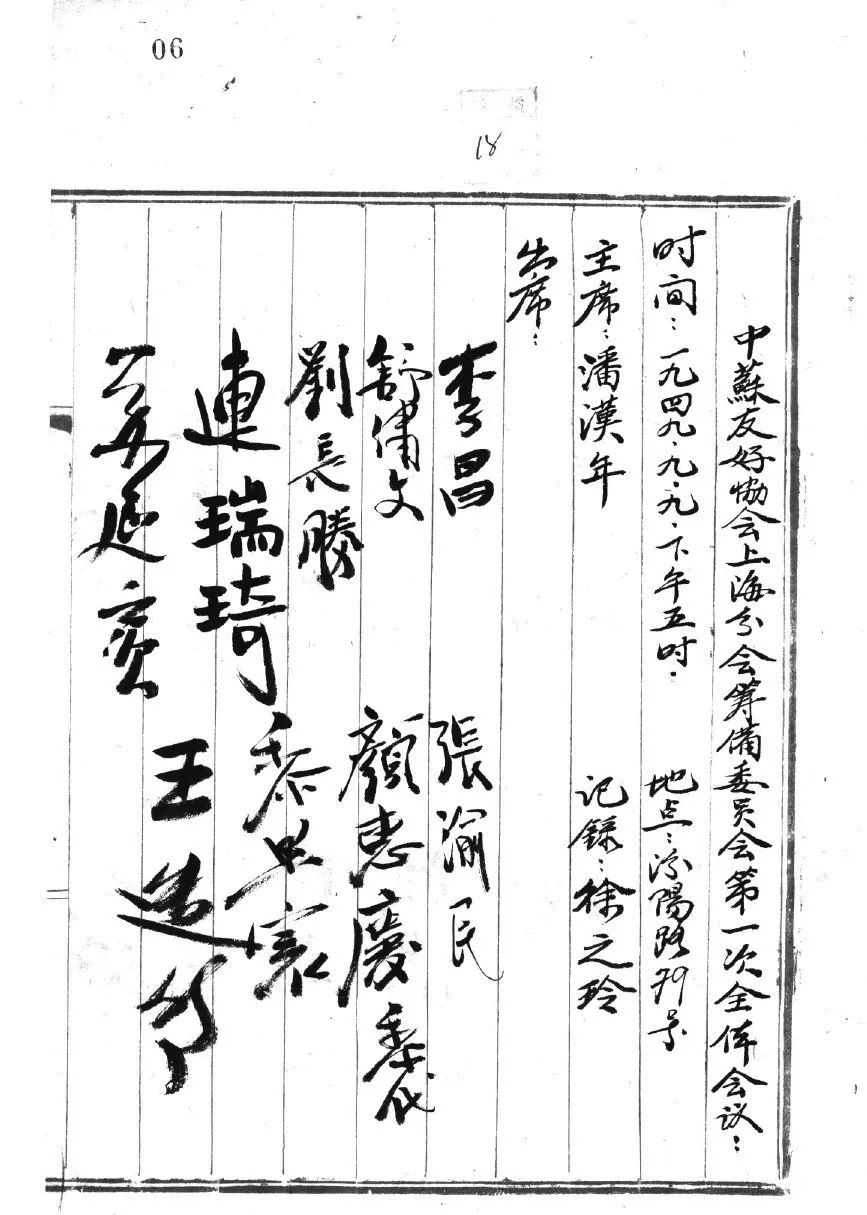 06
18
中蘇友好协会上海分会筹備委员会第一次全体会议：
时间：一九四九·九·九·下午五时·　地点：汾陽路79号
主席：潘漢年　记録：徐之玲
出席：
李昌　張渝民
舒绣文　顏惠慶 代
劉長勝
連瑞琦　黎照寰
王造时